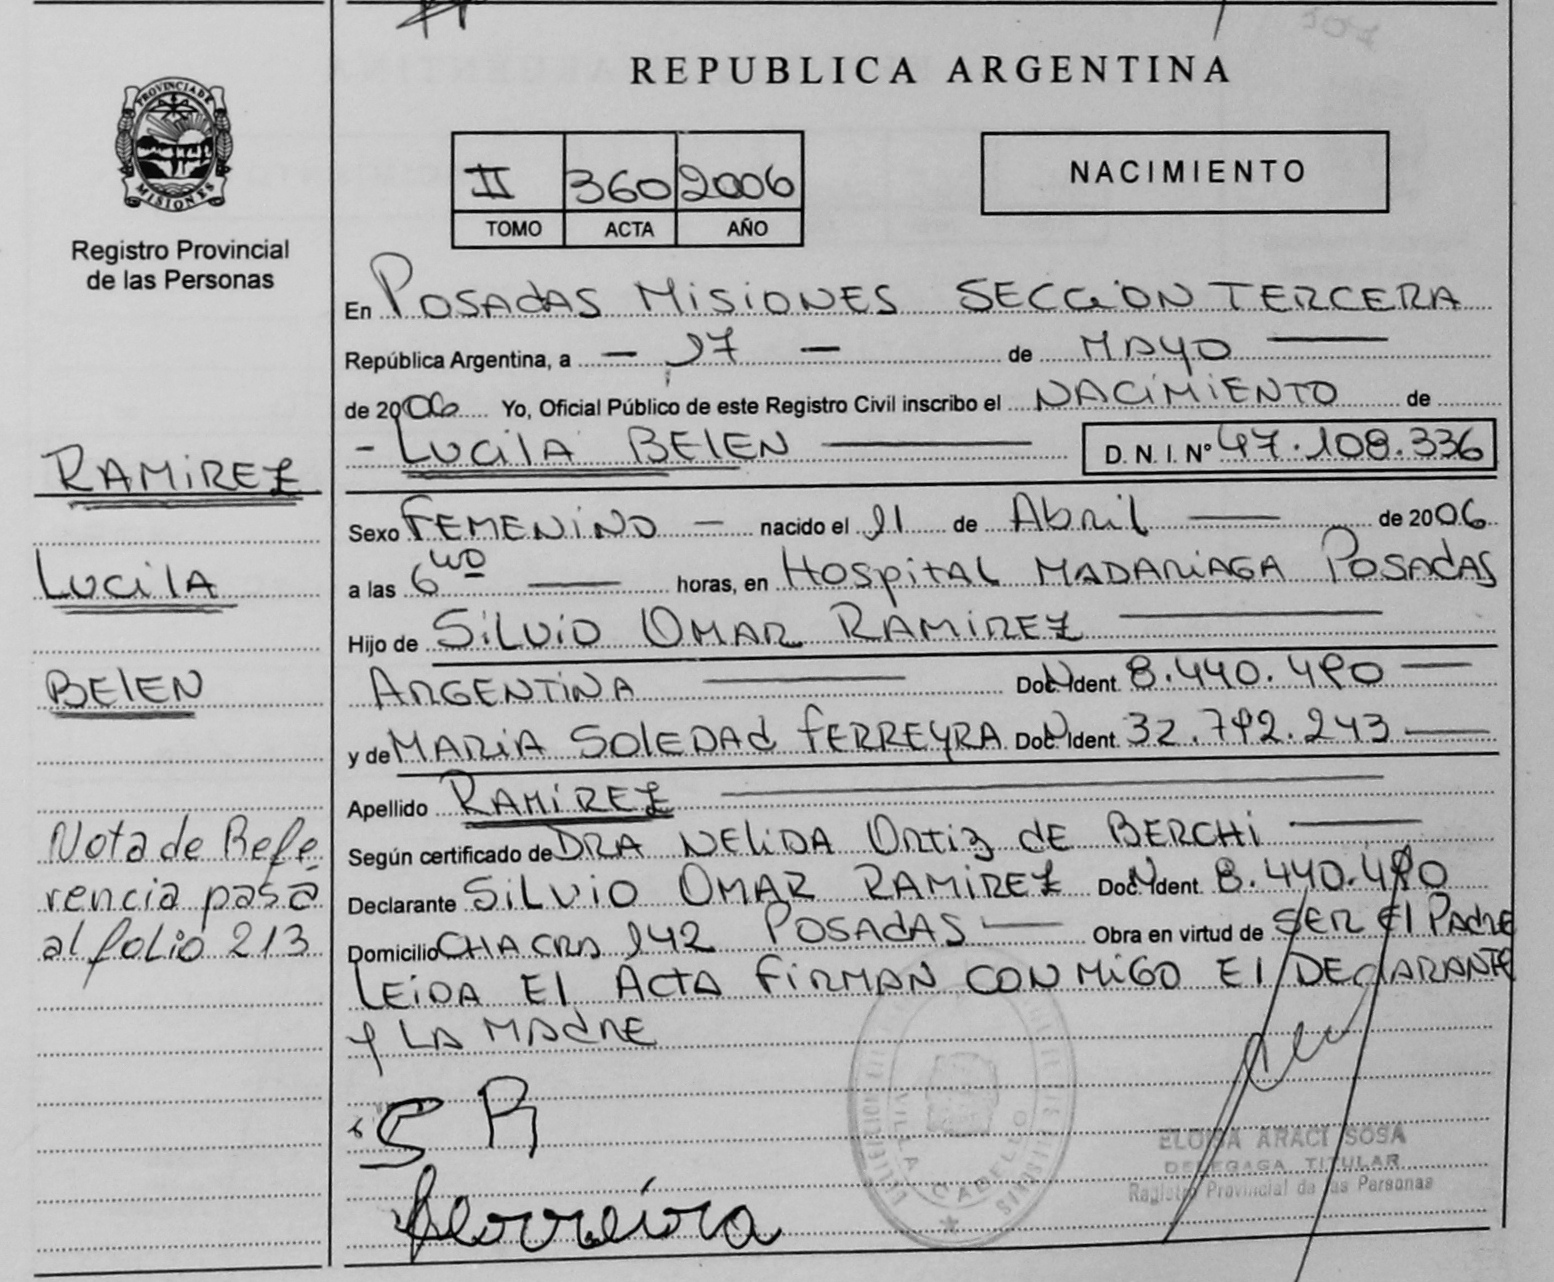 REPUBLICA ARGENTINA
PROVINCIA DE MISIONES
Registro Provincial
de las Personas
II 360 2006
TOMO ACTA AÑO
NACIMIENTO
En POSADAS MISIONES SECCION TERCERA
República Argentina, a - 17 - de MAYO
de 2006 Yo, Oficial Público de este Registro Civil inscribo el NACIMIENTO de
- LUCILA BELEN D. N. I. Nº 47.108.336
Sexo FEMENINO - nacido el 11 de Abril de 2006
a las 6 40 horas, en HOSPITAL MADARIAGA POSADAS
Hijo de SILVIO OMAR RAMIREZ
ARGENTINA Doc. N. Ident. 8.440.490
y de MARIA SOLEDAD FERREYRA Doc. N. Ident. 32.792.243
Apellido RAMÍREZ
Según certificado de DRA NELIDA ORTIZ DE BERCHI
Declarante SILVIO OMAR RAMIREZ Doc. N. Ident. 8.440.490
Domicilio CHACRA 142 POSADAS Obra en virtud de SER El PADRE
LEIDA El ACTA FIRMAN CONMIGO El DEClARANTE
y LA MADRE
S R
Ferreira
RAMIREZ
LUCILA
BELEN
Nota de Refe-
rencia pasa
al folio 213
VILLA CABELLO
ELOISA ARACI SOSA
DELEGADA TITULAR
Registro Provincial de las Personas